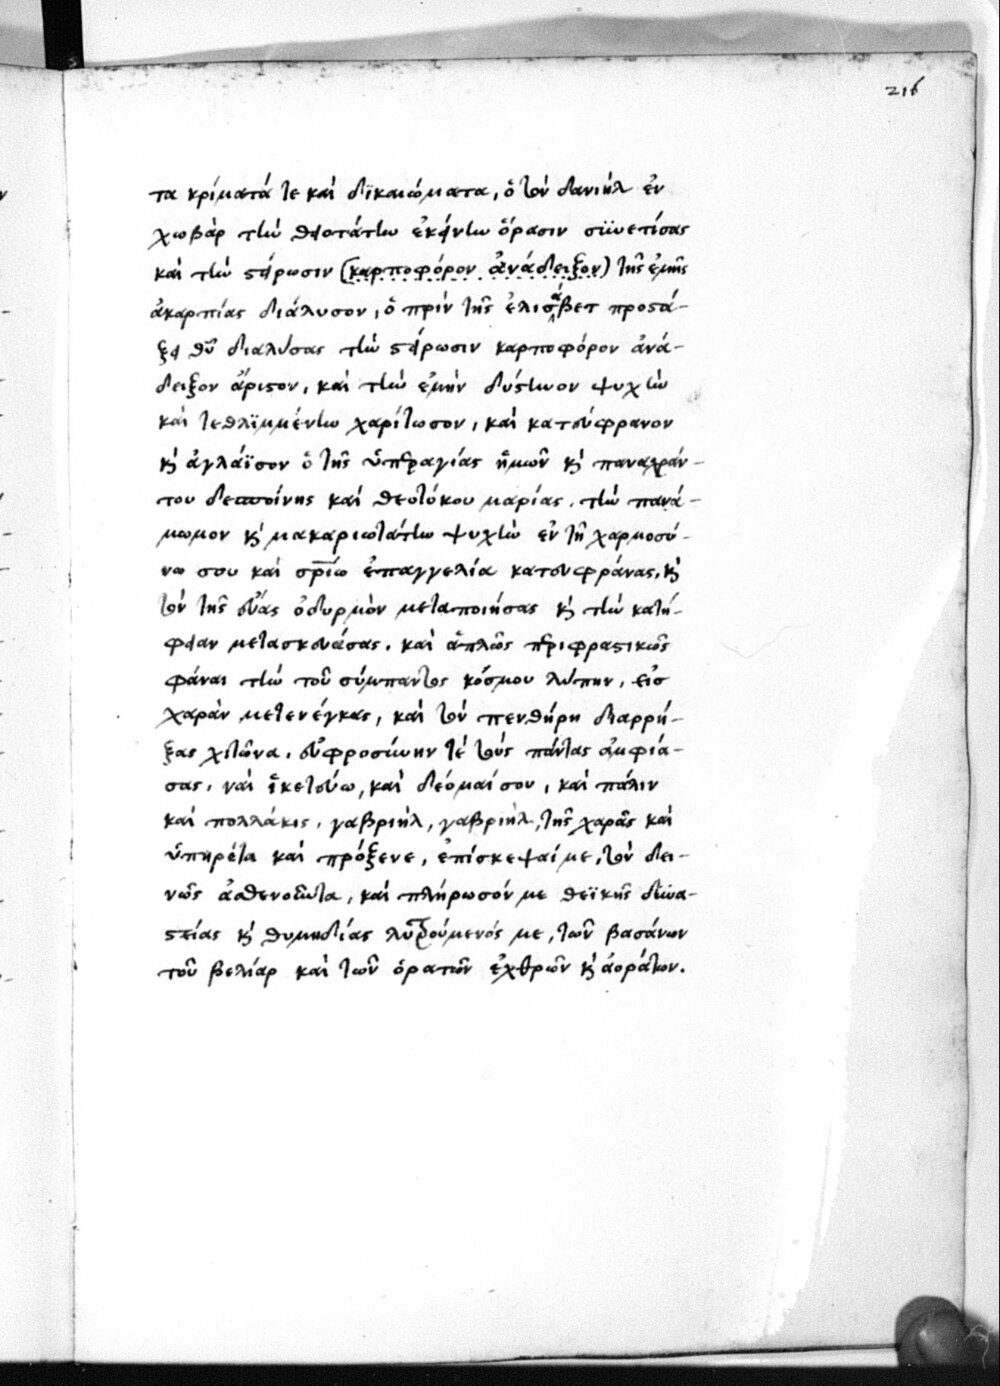 216
τα κρίματά τε καὶ δϊκαιώματα, ὁ τὸν δανιὴλ ἐν
χωβὰρ τὴν θειοτάτην ἐκείνην ὅρασιν συνετίσας
καὶ τὴν στείρωσιν (καρποφόρον ἀνάδειξον) τῆς ἐμῆς
ἀκαρπίας διάλυσον, ὁ πρὶν τῆς ἐλισάβετ προστά-
ξει θῦ διαλύσας τὴν στείρωσιν καρποφόρον ἀνά-
δειξον ἄριστον, καὶ τὴν ἐμὴν δύστηνον ψυχὴν
καὶ τεθλϊμμένην χαρίτωσον, καὶ κατεύφρανον
κ̀ ἀγλάϊσον ὁ τῆς ὑπεραγίας ἡμῶν κ̀ παναχράν-
του δεσποίνης καὶ θεοτόκου μαρίας, τὴν πανά-
μωμον κ̀ μακαριωτάτην ψυχὴν ἐν τῇ χαρμοσύ-
νω σου καὶ σρίω ἐπαγγελία κατευφράνας, κ̀
τὸν τῆς εὔας ὀδυρμὸν μεταποιήσας κ̀ τὴν κατή-
φειαν μετασκευάσας. καὶ ἁπλῶς περιφραστικῶς
φάναι τὴν τοῦ σύμπαντος κόσμου λύπην, εἰς
χαρὰν μετενέγκας, καὶ τὸν πενθήρη διαρρή-
ξας χιτῶνα. εὐφροσύνην τὲ τοὺς πάντας ἀμφιά-
σας. ναὶ ἱκετεύω, καὶ δέομαί σου, καὶ πάλιν
καὶ πολλάκις, γαβριὴλ, γαβριὴλ, τῆς χαρᾶς καὶ
ὑπηρέτα καὶ πρόξενε, ἐπίσκεψαί με, τὸν δει-
νῶς ἀσθενοῦντα, καὶ πλήρωσόν με θεϊκῆς δυνα-
στείας κ̀ θυμηδίας λυτρούμενός με, τῶν βασάνων
τοῦ βελίαρ καὶ τῶν ὁρατῶν ἐχθρῶν κ̀ ἀοράτων.